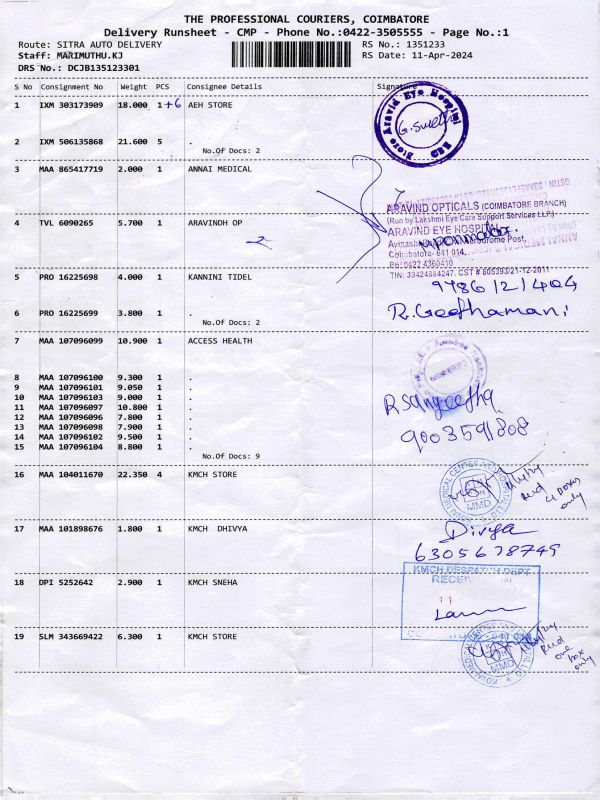 THE PROFESSIONAL COURIERS, COIMBATORE
Delivery Runsheet - CMP - Phone No.:0422-3505555 - Page No.:1
Route: SITRA AUTO DELIVERY RS No.: 1351233
Staff: MARIMUTHU.KJ RS Date: 11-Apr-2024
DRS No.: DCJB135123301
S No Consignment No Weight PCS Consignee Details Signature
1 IXM 303173909 18.000 1+6 AEH STORE
Store Aravind Eye Hospital
G. Swetha
2 IXM 506135868 21.600 5 .
No.Of Docs: 2
3 MAA 865417719 2.000 1 ANNAI MEDICAL
ARAVIND OPTICALS (COIMBATORE BRANCH)
(Run by Lakshmi Eye Care Support Services LLP)
4 TVL 6090265 5.700 1 ARAVINDH OP
ARAVIND EYE HOSPITAL
Aerodrome Post,
Coimbatore- 641 014.
Ph: 0422 4360410
TIN: 33424884247. CST # 805393/21-12-2011
5 PRO 16225698 4.000 1 KANNINI TIDEL
9786121404
R. Geethamani
6 PRO 16225699 3.800 1 .
No.Of Docs: 2
7 MAA 107096099 10.900 1 ACCESS HEALTH
8 MAA 107096100 9.300 1 .
9 MAA 107096101 9.050 1 .
10 MAA 107096103 9.000 1 .
R Sangeetha
11 MAA 107096097 10.800 1 .
12 MAA 107096096 7.800 1 .
13 MAA 107096098 7.900 1 .
9003591808
14 MAA 107096102 9.500 1 .
15 MAA 107096104 8.800 1 .
No.Of Docs: 9
16 MAA 104011670 22.350 4 KMCH STORE
MMD
Rcvd
4 Boxes
only
17 MAA 101898676 1.800 1 KMCH DHIVYA
Divya
6305678749
18 DPI 5252642 2.900 1 KMCH SNEHA
KMCH DESPATCH DEPT
11
641 014
19 SLM 343669422 6.300 1 KMCH STORE
MMD
Rcvd
one
box
only